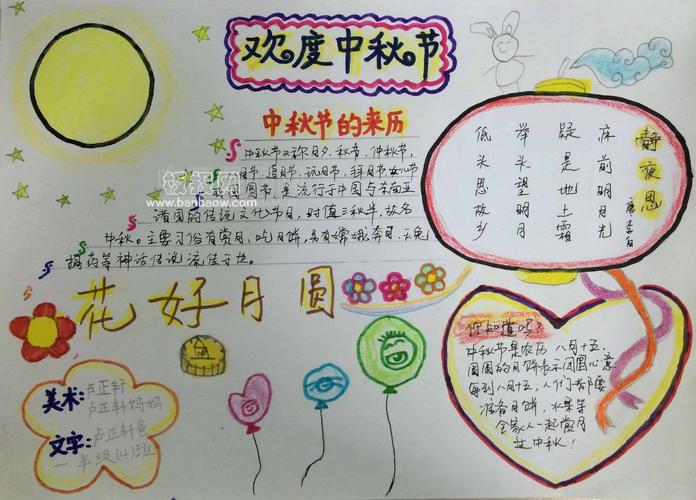 欢度中秋节
中秋节的来历
中秋节又称月夕、秋节、仲秋节、
月节、追月节、玩月节、拜月节、女儿节
圆节,是流行于中国与东南亚
诸国的传统文化节日,时值三秋半,故名
中秋。主要习俗有赏月、吃月饼,另有嫦娥奔月、玉兔
捣药等神话传说流传于世。
板报网
www.banbaow.com
静夜思
唐李白
床前明月光
疑是地上霜
举头望明月
低头思故乡
花好月圆
你知道吗?
中秋节是农历八月十五,
圆圆的月饼表示团圆心意
每到八月十五,人们都要
准备月饼,水果等
全家人一起赏月
过中秋!
美术:卢正轩
卢正轩妈妈
文字:卢正轩爸
一年级(4)班